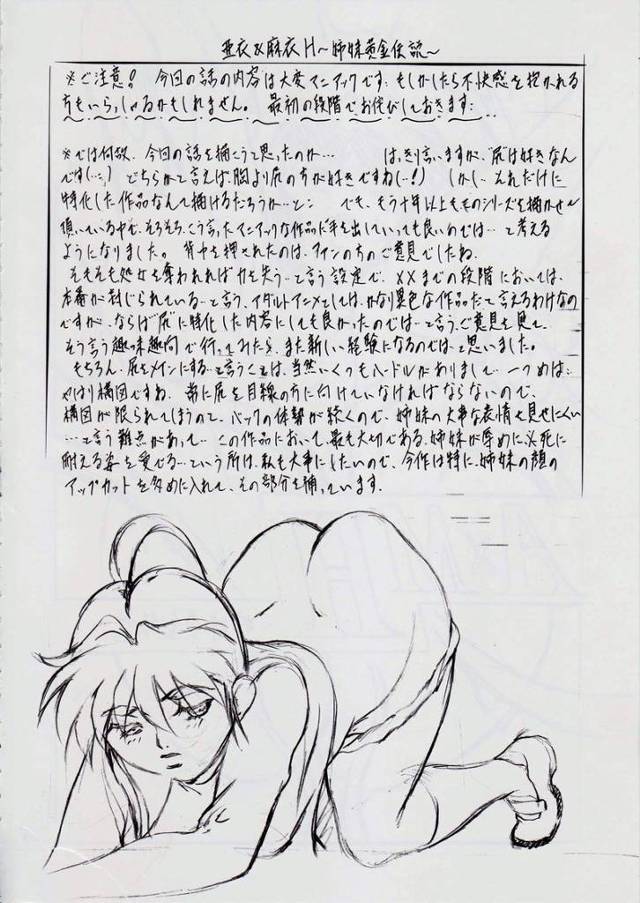 亜衣&麻衣H～姉妹黄金伝説～
※ご注意！ 今回の話の内容は大変マニアックです…もしかしたら不快感を抱かれる
方もいらっしゃるかもしれません。 最初の段階でお詫びしておきます…
※では何故、今回の話を描こうと思ったのか… はっきり言いますが、「尻は好きなん
です(…) どちらかと言えば胸より尻の方が好きですね(…!) しかし…それだけに
特化した作品なんて描けるだろうか…と… でも、もう十年以上もこのシリーズを描かせて
頂いている中で、そろそろ、こう言ったマニアックな作品に手を出していっても良いのでは…と考える
ようになりました。 背中を押されたのは、ファンの方のご意見でしたね。
そもそも処女を奪われれば力を失う…と言う設定で、××までの段階においては、
本番が封じられている…と言う、アダルトアニメとしては、かなり異色な作品だと言えるわけなの
ですが、ならば「尻」に特化した内容にしても良かったのでは…と言うご意見を見て、
そう言う趣味趣向で行ってみたら、また新しい経験になるのでは…と思いました。
もちろん、尻をメインにする…と言うことは、当然いくつもハードルがありまして…一つめは…
やはり構図ですね。 常に尻を目線の方に付けていなければならないので、
構図が限られてしまうのと、バックの体勢が続くので、姉妹の大事な表情を見せにくい
…と言う難点があって…この作品において、最も大切である、姉妹が辱めに必死に
耐える姿を愛でる…という所は、私も大事にしたいので、今作は特に、姉妹の顔の
アップカットを多めに入れて、その部分を補っています。